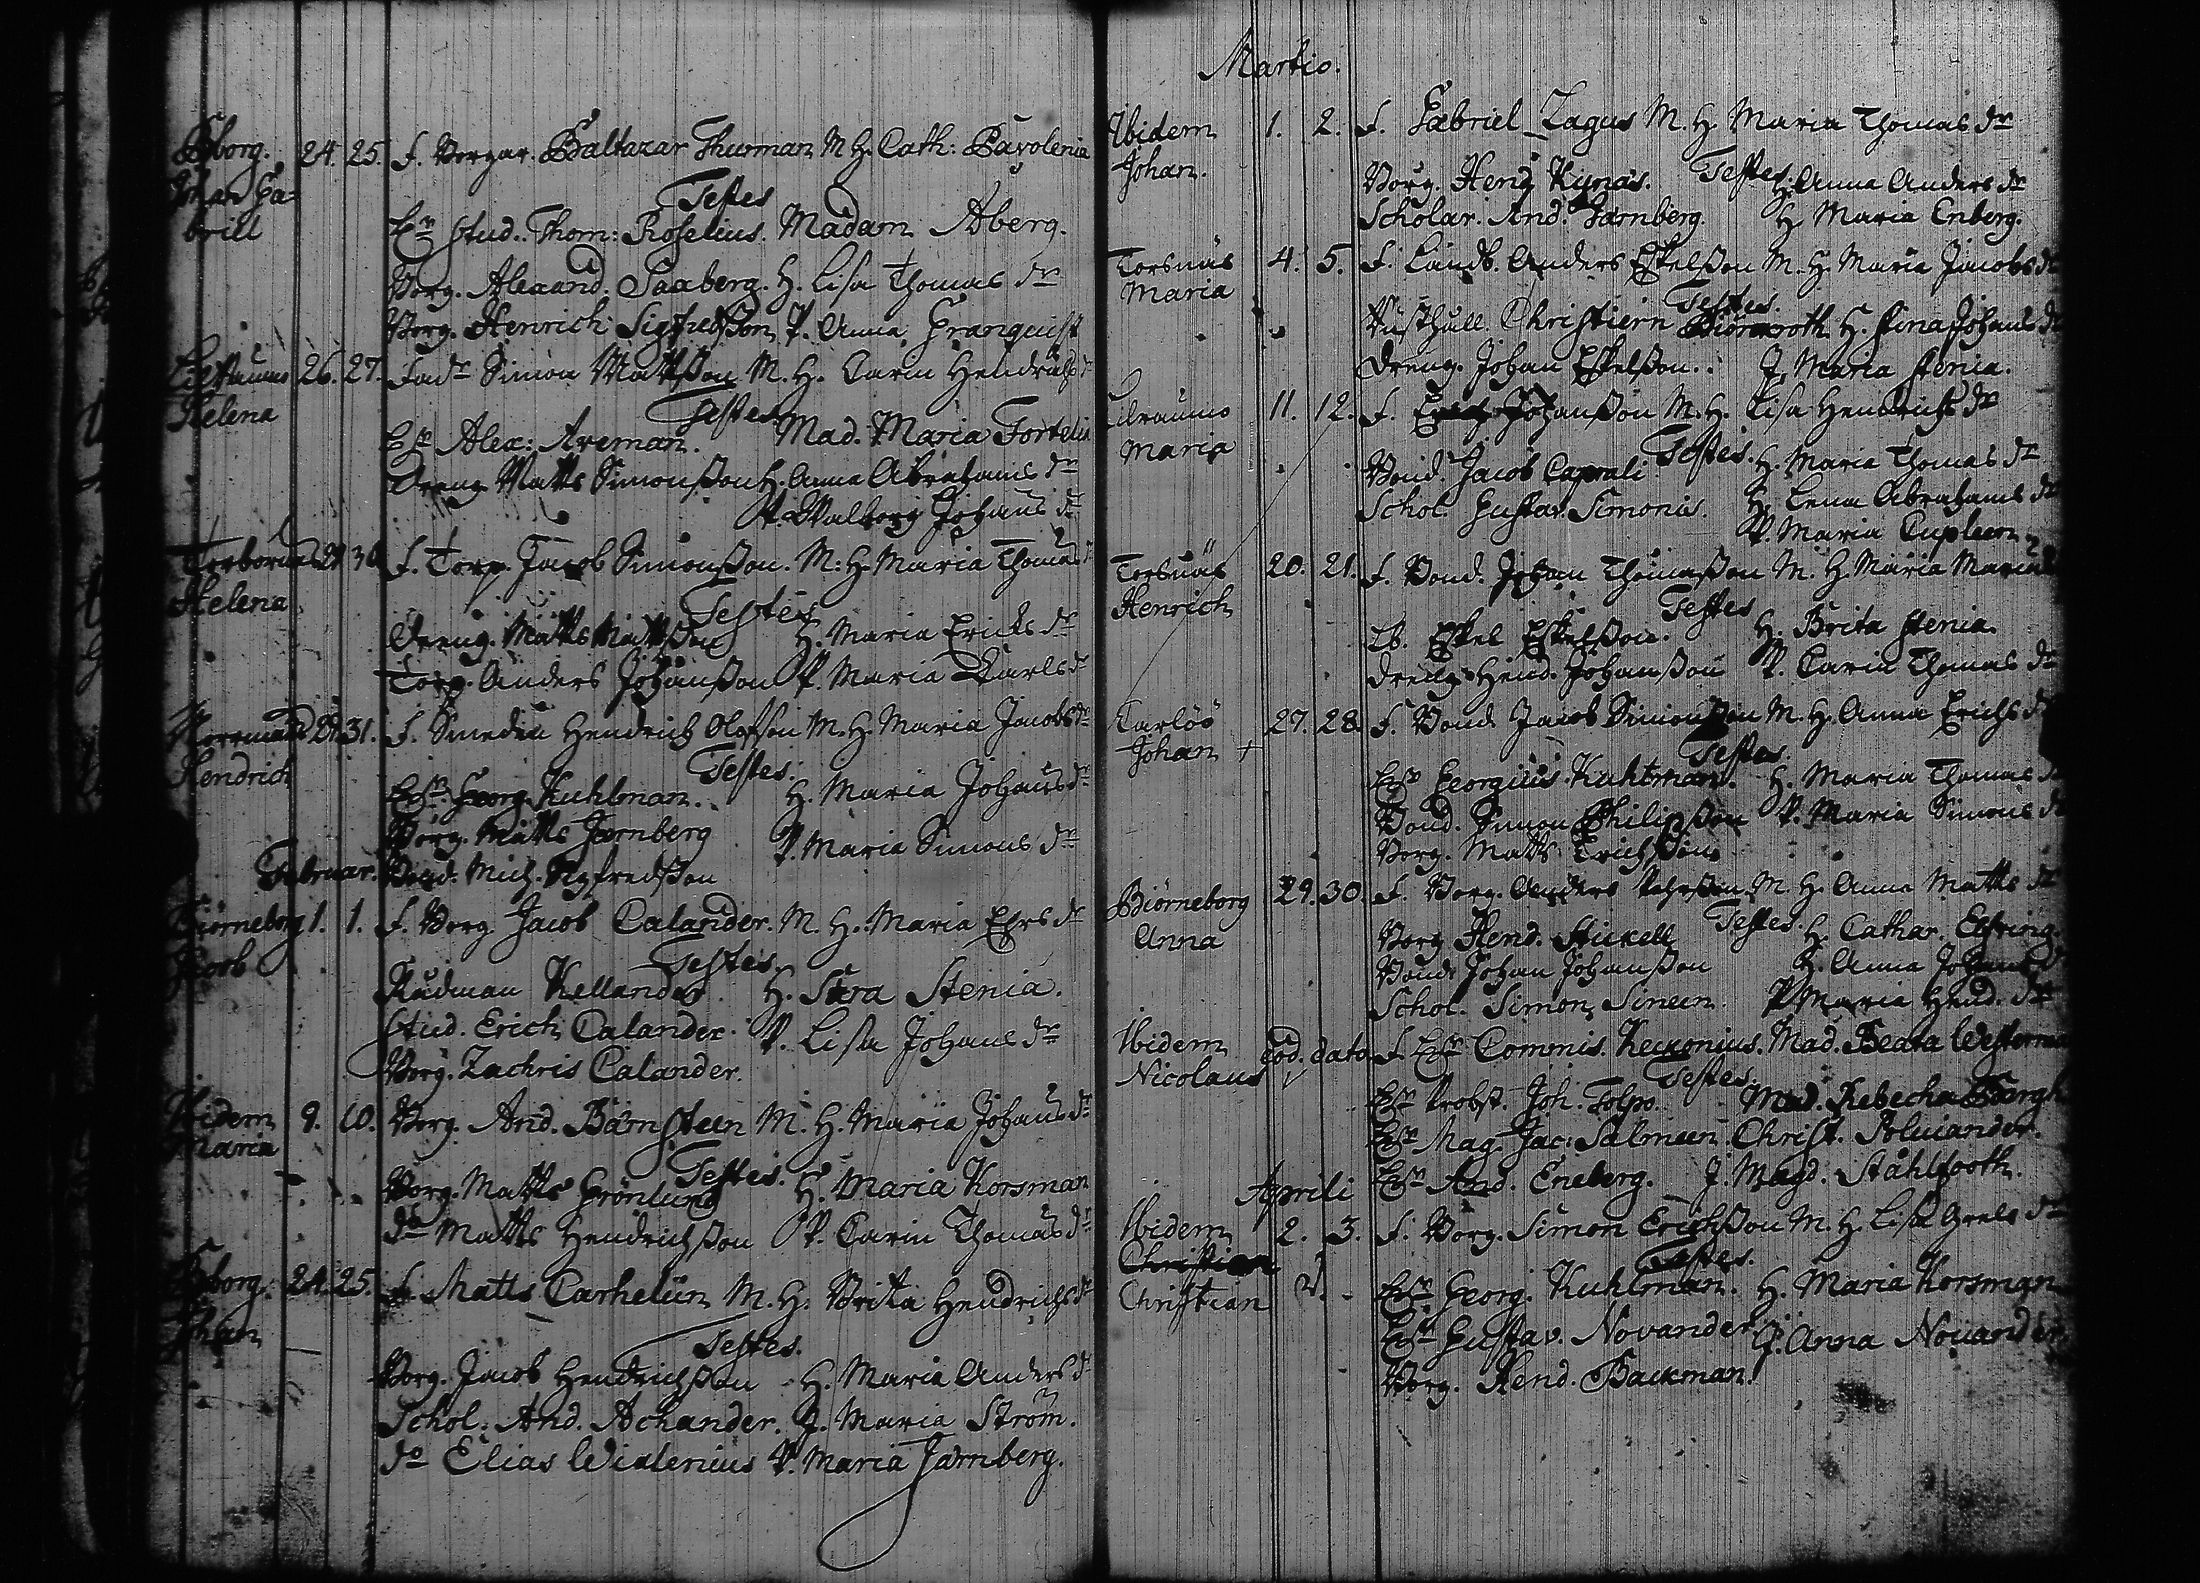 Bborg. 24. 25. f. Borgar. Baltazar Thurman M H. Cath: Pavolenia
Johan Ga-
briel
Testes
Hr Stud. Thom: Roselius. Madam Aberg.
Borg. Alexand. Saxberg. H. Lisa Thomas dr
Borg. Henrich Sigfredsson P. Anna Granquist
26. 27. Matsson M. H. Carin Hendrichs dr
Helena
Testes
Hr Alex: Areman. Mad. Maria Fortelia
Dreng Matts Simonsson H. Anna Abrahams dr
P. Walborg Johans dr
29 30 f. Torp. Jacob Simonsson. M. H. Maria Thomas dr
Helena
Testes
Dreng. Matts Mattsson H. Maria Ericks dr
Torp. Anders Johansson P. Maria Carls dr
29. 31. f. Smeden Hendrich Olofson M. H. Maria Jacobs dr
Hendrich
Testes.
Hr Georg. Kuhlman. H. Maria Johans dr
Borg. Matts Jernberg P. Maria Simons dr
Februar. Bond. Mich. Sigfredsson
Biörneborg 1. 1. f. Borg Jacob Calander. M. H. Maria Ehrs dr
Jacob
Testes
Rådman Kellander. H. Sara Stenia.
Stud. Erich Calander. P. Lisa Johans dr
Borg. Zachris Calander.
Ibidem 9. 10. Borg. And. Bärnsteen M. H. Maria Johans dr
Maria
Testes.
Borg. Matts Grönlund H. Maria Korsman
do Matts Hendrichsson P. Carin Thomas dr
Bborg. 24. 25. f. Matts Carhelin M. H. Brita Hendrichs dr
Johan
Testes.
Borg. Jacob Hendrichsson H. Maria Anders dr
Schol: And. Achander. J. Maria Ström.
do Elias Widlenius P. Maria Järnberg.
Martio.
Ibidem 1. 2. f. Gabriel Zagus M. H. Maria Thomas dr
Johan.
Testes.
Borg. Henr. Kynäs. H. Anna Anders dr
Scholar. And. Järnberg. H. Maria Enberg.
Torsnäs 4. 5. f. Landb. Anders Eskelsson M. H. Maria Jacobs dr
Maria
Testes.
Rusthåll. Christiern Biörnroth H. Stina Johans dr
Dreng. Johan Eskelsson. J. Maria Stenia.
Lilraumo 11. 12. f. Erich Johansson M. H. Lisa Hendrichs dr
Maria
Testes.
Bond. Jacob Caprali H. Maria Thomas dr
Schol. Gustav. Simonis. H. Lena Abrahams dr
P. Maria Cupleen
Torsnäs 20. 21. f. Bond. Johan Thomasson M. H. Maria
Henrich
Testes
Lb. Eskel Eskelsson. H. Brita Stenia.
Dreng Hend. Johansson P. Carin Thomas dr
Carlöö 27. 28. f. Bond. Jacob Simonsson M. H. Anna Erichs dr
Johan +
Testes.
Hr Georgius Kuhlman. H. Maria Thomas
Bond. Simon Philipsson P. Maria Simons dr
Borg. Matts Erichsson
Biörneborg 29. 30. f. Borg. Anders M. H. Anna Matts dr
Anna
Testes.
Borg Hend. Stickell H. Cathar. Ehring.
Bond. Johan Johansson H. Anna Johans dr
Schol. Simon Sineen. P. Maria Hend. dr
Ibidem eod. dato f. Hr Commis. Keckonius. Mad. Beata Westerman
Nicolaus
Testes
Hr Probst. Joh. Tolpo. Mad. Rebecka Bergh
Hr Mag. Jac: Salmeen Christ. Polviander.
Hr And. Eneberg. J. Magd. Stählfooth.
Aprili
Ibidem 2. 3. f. Borg. Simon Erichsson M. H. Lisa Grels dr
Christian
Testes.
Christian Hr Georg. Kuhlman. H. Maria Korsman
Hr Gustav. Novander J. Anna Novander
Borg. Hend. Backman.